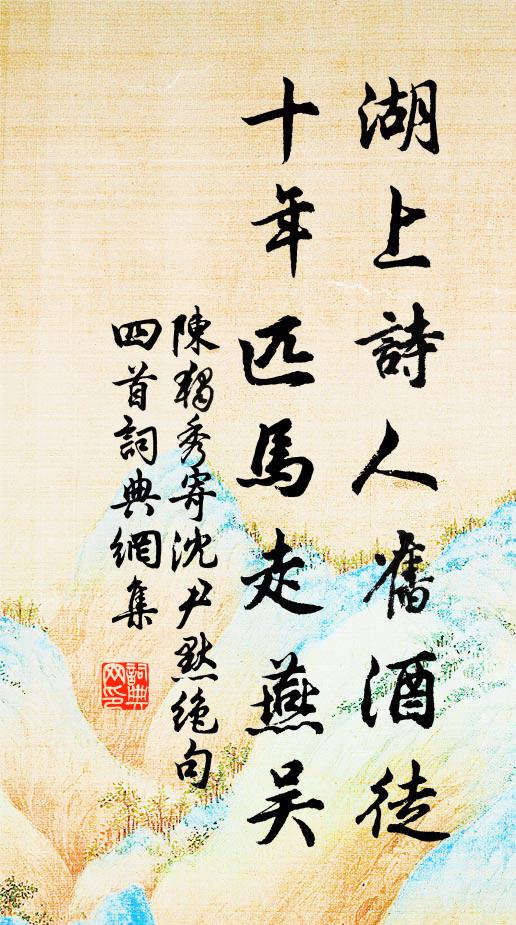 湖上詩人舊酒徒
十年匹馬走燕吴
陳獨秀寄沈尹默絕句
四首詞典網集
詞典
网印